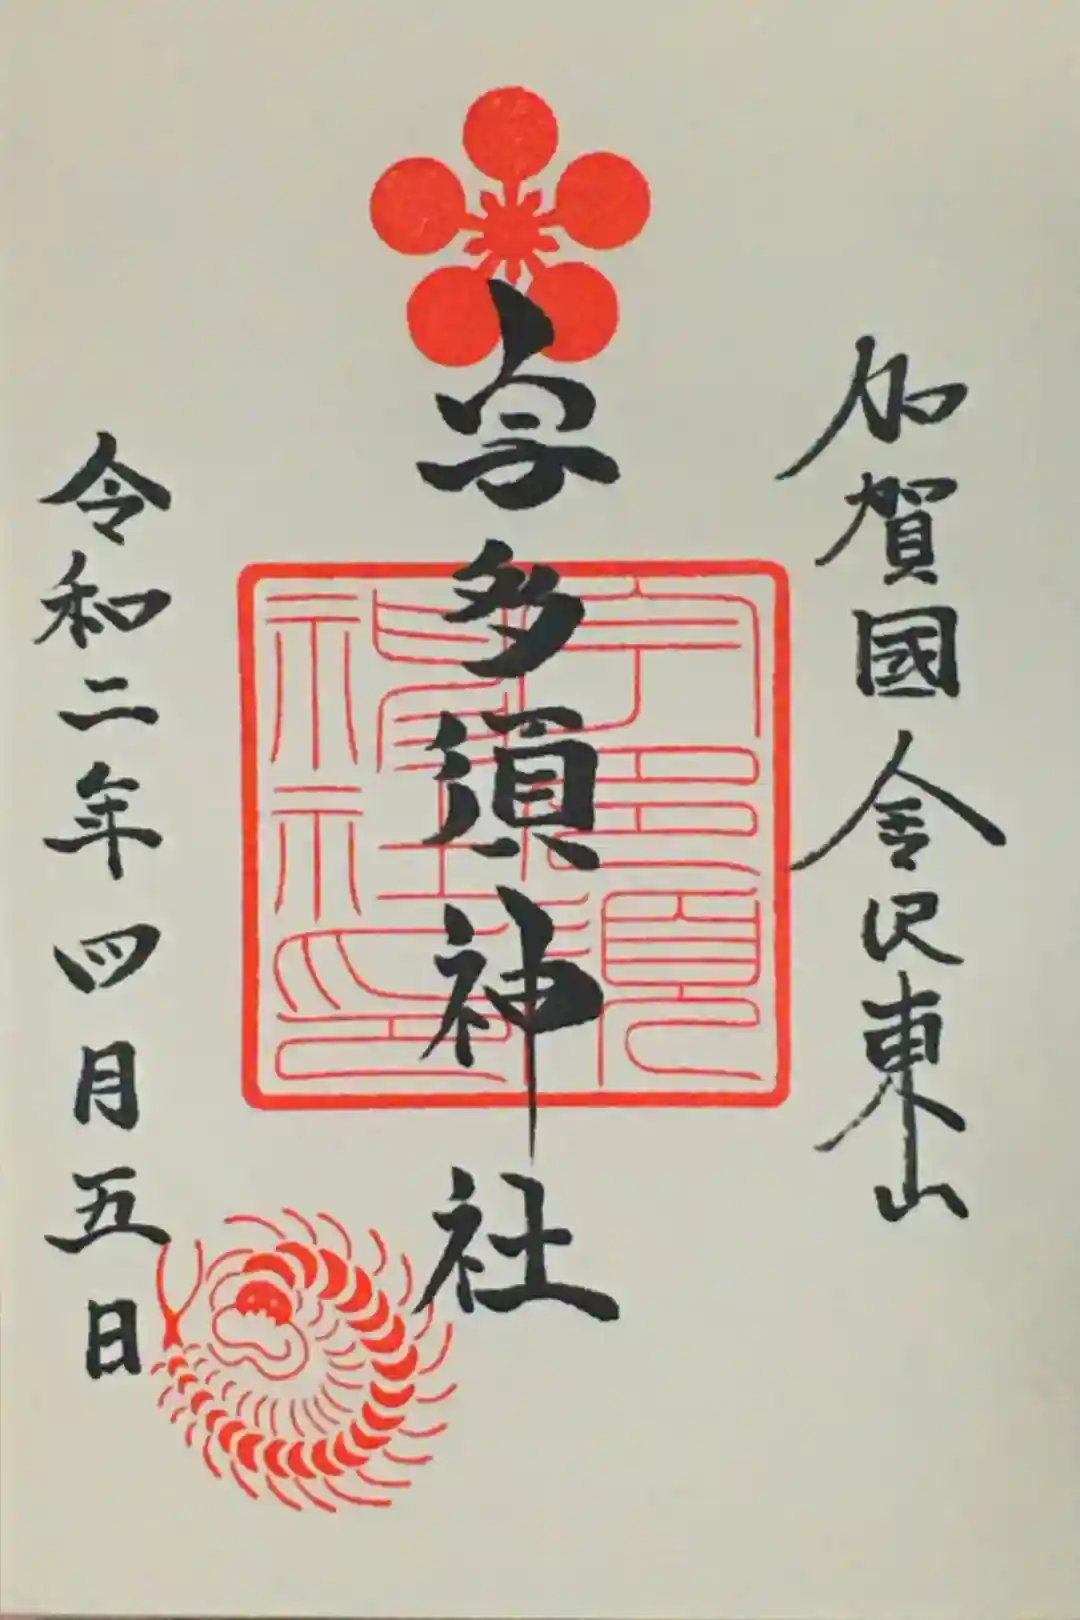 加賀國金沢東山
宇多須神社
令和二年四月五日
宇多須神社印